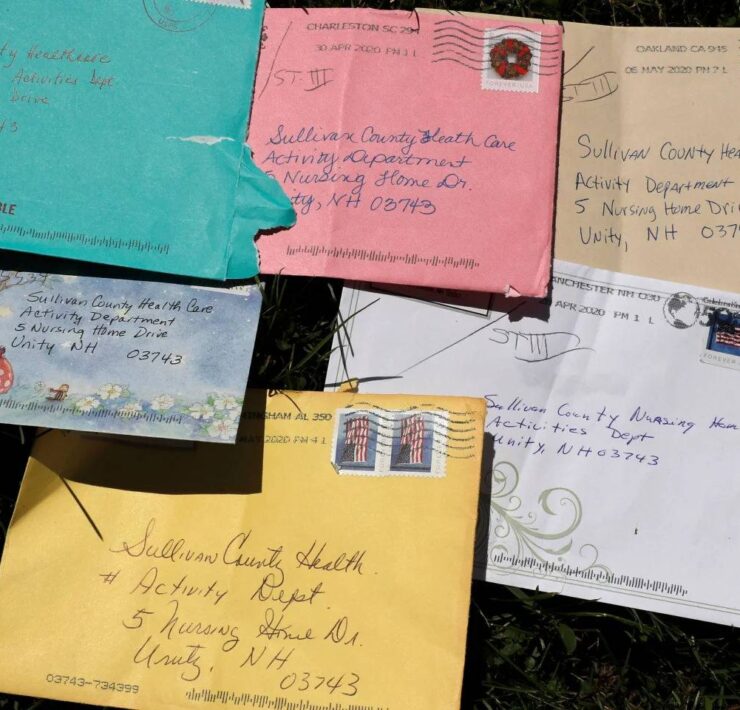 Activities Dept
Drive
BLE
CHARLESTON SC 294
30 APR 2020 PM 1 L
FOREVER USA
ST. III
Sullivan County Heath Care
Activity Department
5 Nursing Home Dr.
NH 03743
OAKLAND CA 945
06 MAY 2020 PM 7 L
III
Sullivan County Hea
Activity Department
5 Nursing Home Dri
Unity, NH 037
Sullivan County Health Care
Activity Department
5 Nursing Home Drive
Unity NH 03743
ANCHESTER NH 030
APR 2020 PM 1 L
FOREVER
ST III
Sullivan County Nursing Hom
Activities Dept
Unity, NH 03743
INGHAM AL 350
MAY 2020 PM 4 L
Sullivan County Health
# Activity Dept.
5 Nursing Home Dr.
Unity, NH
03743
03743-734399